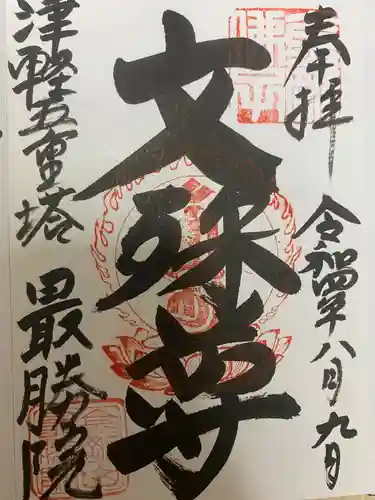 奉拝
令和四年八月九日
文殊尊
津軽五重塔
最勝院